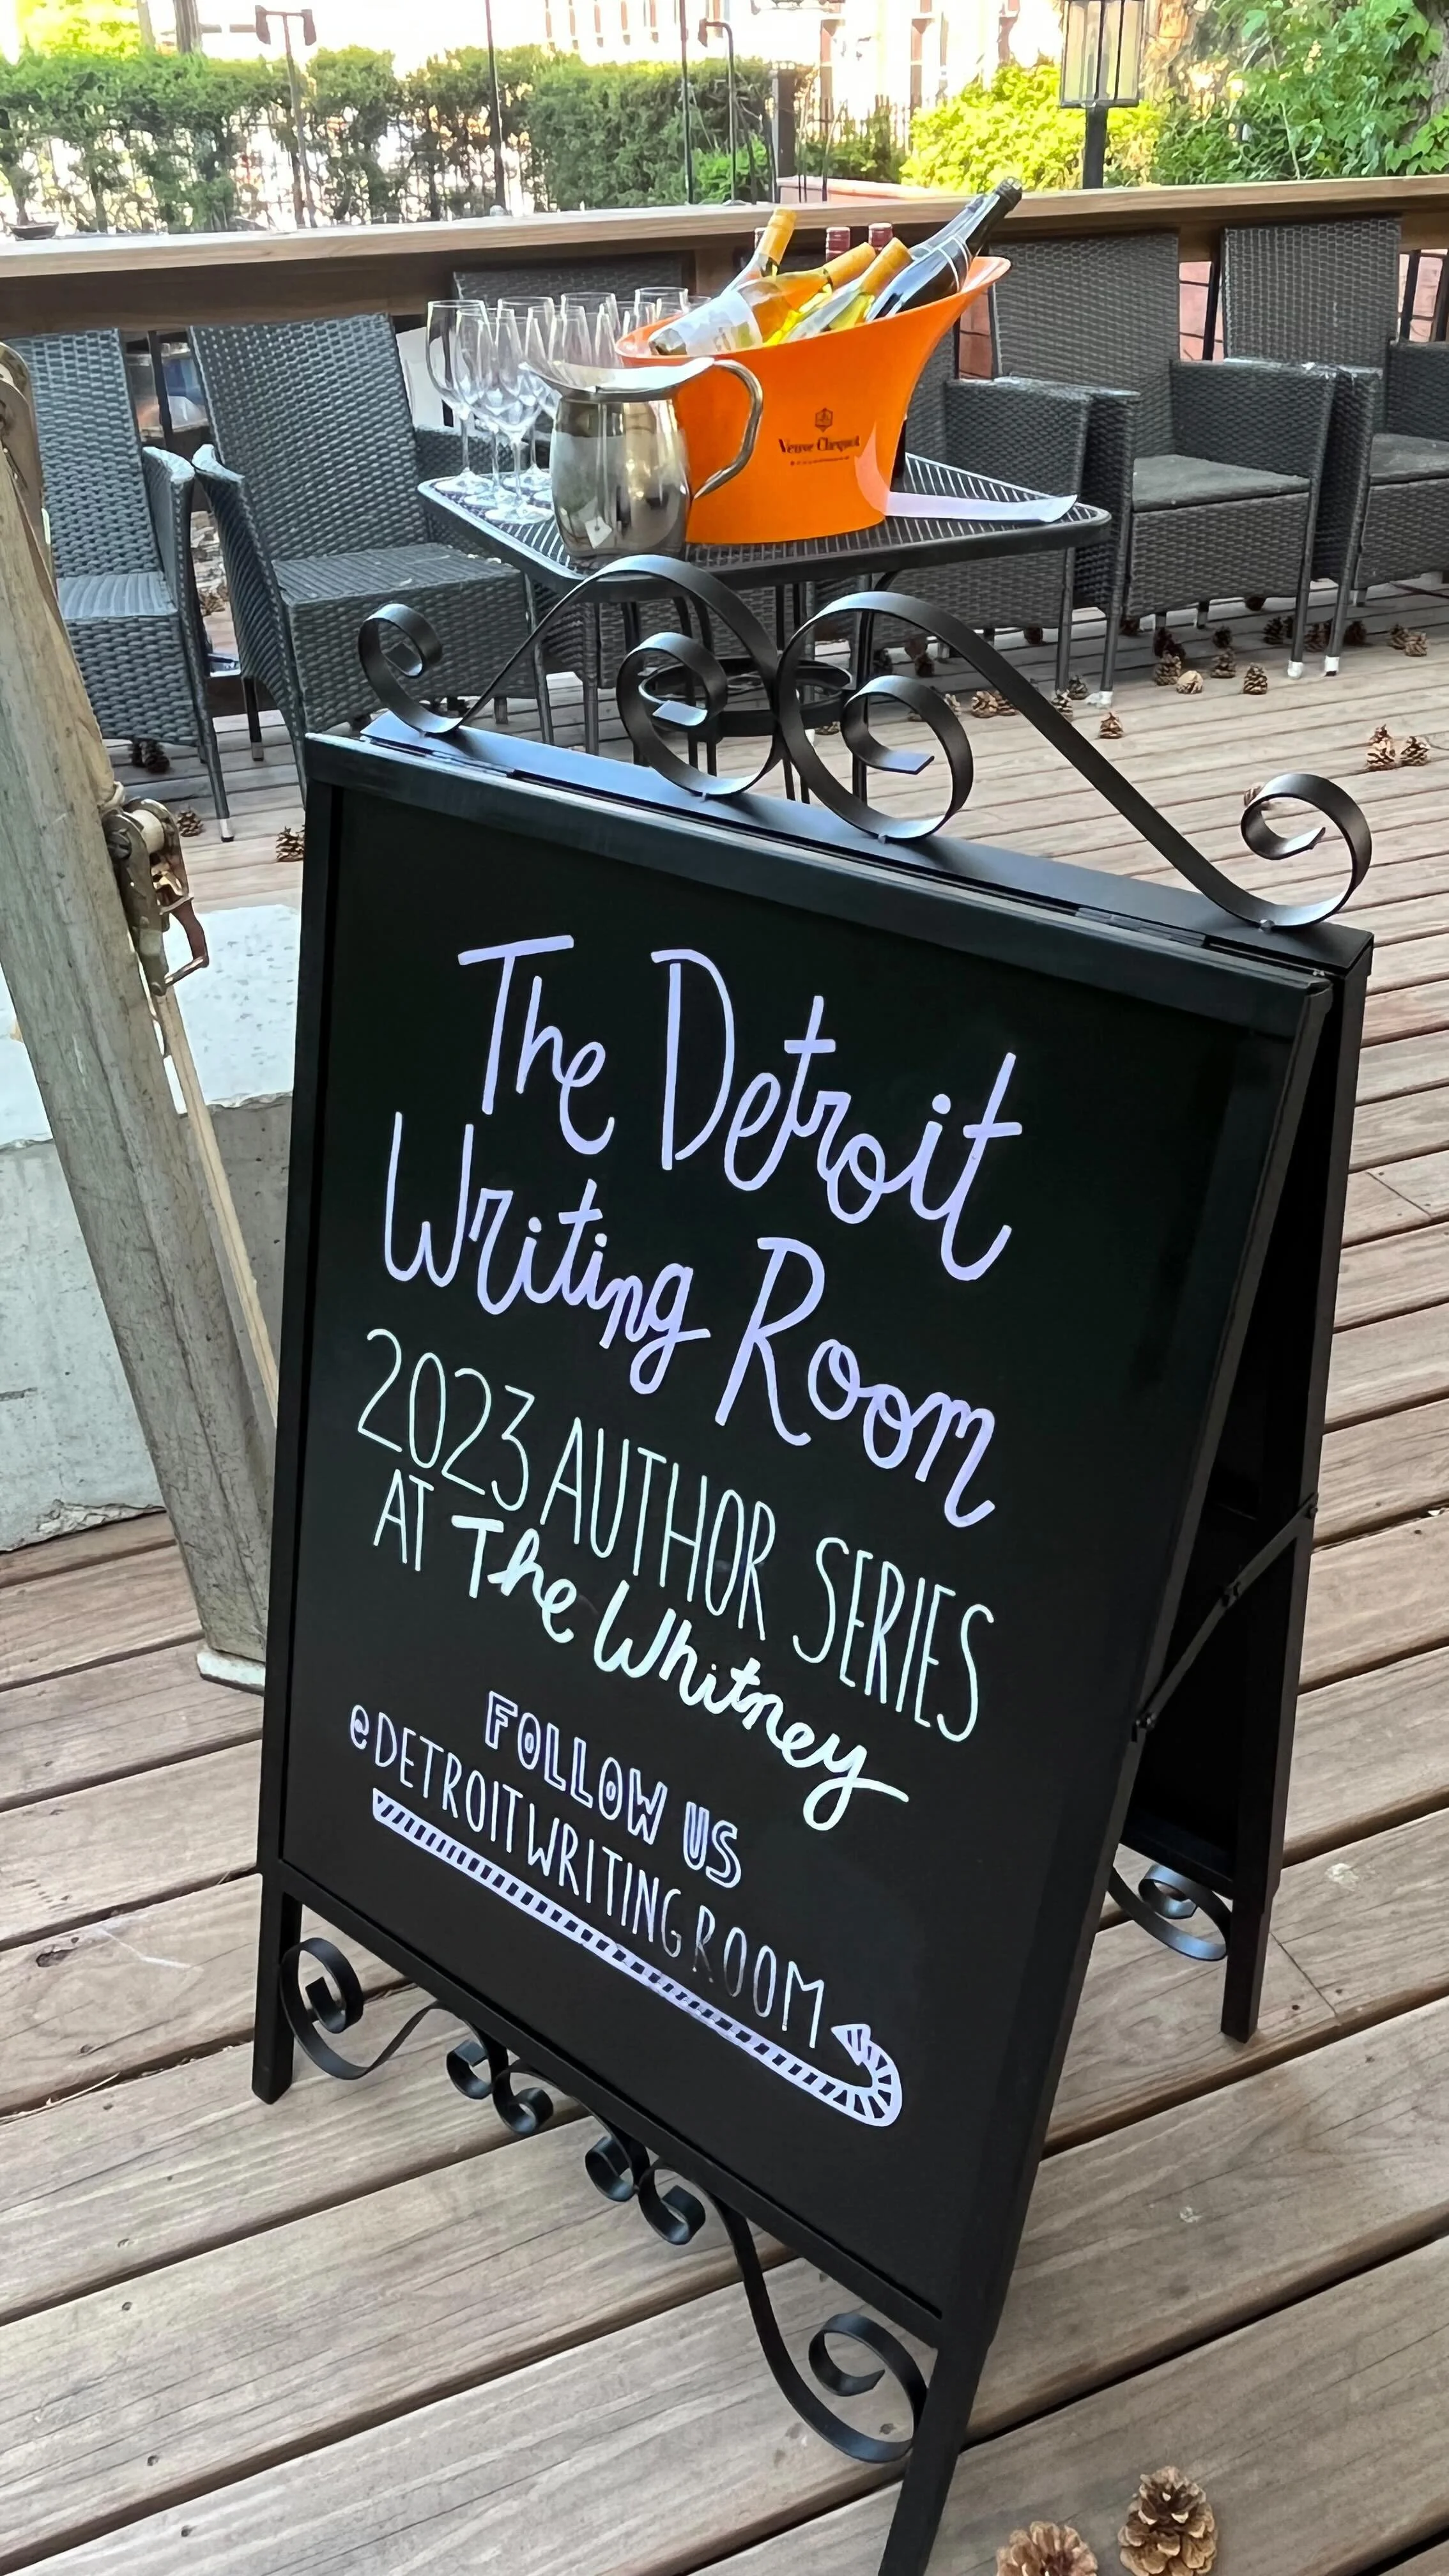 Veuve Clicquot
The Detroit
Writing Room
2023 AUTHOR SERIES
AT The Whitney
FOLLOW US
@DETROITWRITINGROOM